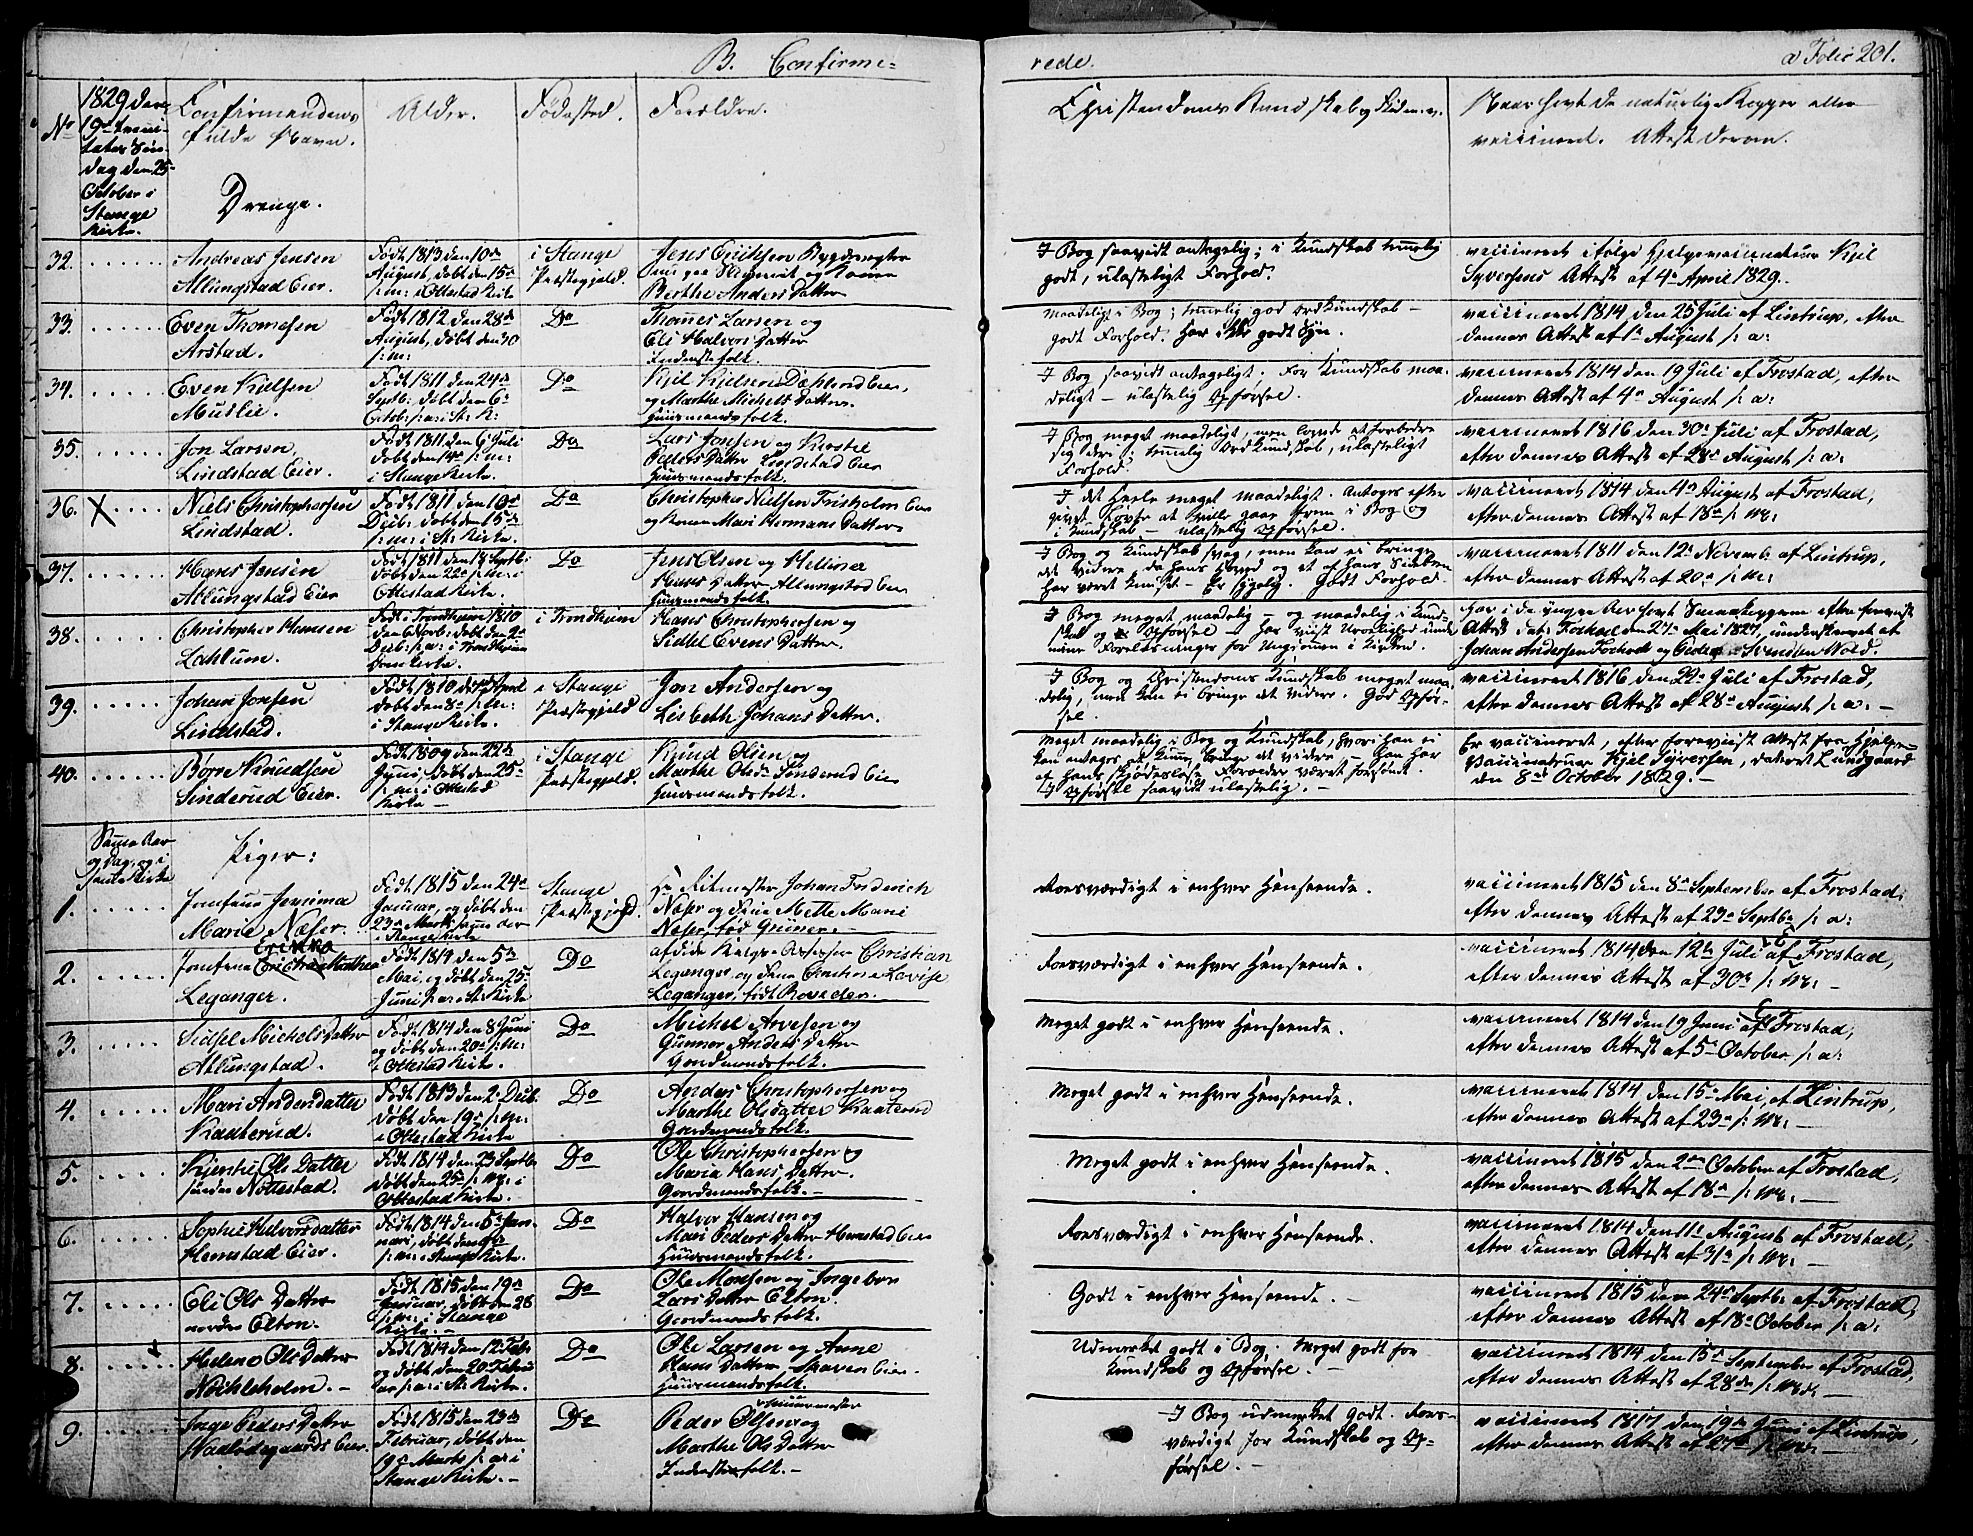 B. Confirme-
rede.
a Folio 201.
No
1829 den
19de Trini-
tatis Søn-
dag den 25
October i
Stange
Kirke.
Confirmandens
fulde Navn.
Alder.
Fødested.
Forældre.
Christendoms Kundskab og Siden.
Naar havt de naturlige Kopper eller
vaccineret. Attest derom.
Drenge.
32.
Andreas Jensen
Atlungstad Eier.
Født 1813 den 10de
August, døbt den 15de
s: m: i Ottestad Kirke
i Stange
Præstegjeld.
Jens Eriksen
og Konen
Berthe Anders Datter
I Bog saavidt antagelig; i Kundskab temelig
godt, ulasteligt Forhold.
vaccineret ifølge Hjelpevaccinateur Kjel
Syversens Attest af 4de April 1829.
33.
Even Thomesen
Arstad.
Født 1812 den 28de
August, døbt den 30
s: m:
Do
Thomes Larsen og
Eli Halvors Datter
Inderstefolk.
Maadeligt i Bog; temelig god Ordkundskab –
godt Forhold. Har ikke godt Syn.
vaccineret 1814, den 25 Juli af Lintrup, efter
dennes Attest af 1ste August s: a:
34.
Even Kielsen
Muslie.
Født 1811 den 24de
Septb: døbt den 6te
Octob: s: a: i St: K:
Do
Kjel Kjelsen Dæhlens Eier,
og Marthe Michels Datter.
Huusmandsfolk.
I Bog saavidt antageligt. For Kundskab maa-
deligt – ulastelig Opførsel.
vaccineret 1814 den 19 Juli af Frostad, efter
dennes Attest af 4de August s: a:
35.
Jon Larsen
Lindstad Eier.
Født 1811 den 6te Juli
døbt den 14de s: m:
i Stange Kirke.
Do
Lars Jonsen og Kirstie
Peders Datter Lindstad Eier
Huusmandsfolk.
I Bog meget maadeligt, men lovede at forbedre
sig deri; temelig Ordkundskab, ulasteligt
Forhold.
vaccineret 1816 den 30te Juli af Frostad,
efter dennes Attest af 28de August s: a:
36. X
Niels Christophersen
Lindstad.
Født 1811 den 10de
Decb: døbt den 15de
s: m: i St: Kirke.
Do
Christopher Nielsen Frisholm Eier
og Konen Mari Hermans Datter
I det Heele meget maadeligt. Antoges efter
givet Løfte at ville gaae frem i Bog og
i Kundskab – ulastelig Opførsel.
vaccineret 1814 den 4de August af Frostad,
efter dennes Attest af 18de s: M:
37.
Hans Jensen
Atlungstad Eier
Født 1811 den 18 Septb:
døbt den 22de s: m: i
Ottestad Kirke.
Do
Jens Olsen og Helline
Hans Datter Atlungstad Eier
Huusmandsfolk.
I Bog og Kundskab svag, men kan ei bringe
det videre, da hans Hoved og et af hans Sidebeen
har været knuset – Er sygelig. Godt Forhold.
vaccineret 1811 den 12te Novemb: af Lintrup,
efter dennes Attest af 20de s: M:
38.
Christopher Hansen
Lahlum.
Født i Trondhiem 1810
den 6 Septb: døbt den 2de
Decb: s: a: i Trondhiem
Kirke.
i Trondhiem
Hans Christophersen og
Sidsel Evens Datter.
I Bog meget maadelig – og maadelig i Kund-
skab og Opførsel – har viist Urolighed under
mine Forelæsninger for Ungdommen i Kirken.
Har i de yngre Aar havt Smaakopperne efter foreviist
Attest dat: Forhol den 27de Mai 1827, underskrevet af
Johan Andersen Forhol og Peder Svendsen Wold.
39.
Johan Jonsen
Lindstad.
Født 1810 den 1ste April
døbt den 8de s: M:
i Stange Kirke.
i Stange
Præstegjeld
Jon Andersen og
Lisbeth Johans Datter.
I Bog og Christendoms Kundskab meget maa-
delig, men kan ei bringe det videre. God Opfør-
sel.
vaccineret 1816 den 22de Juli af Frostad,
efter dennes Attest af 28de August s: a: –
40.
Børre Knudsen
Sinderud Eier.
Født 1809 den 22de
Juni, døbt den 25de
s: m: i Ottestad
Kirke –
i Stange
Præstegjeld.
Knud Olsen og
Marthe Olsdr Sinderud Eier
Huusmandsfolk.
Meget maadelig i Bog og Kundskab, hvori han ei
kan antages at kunne bringe det videre – Han har
af hans skjødesløse Forældre været forsømt.
I Opførsel saavidt ulastelig. –
Er vaccineret, efter foreviist Attest fra Hjelpe-
Vaccinateur Kjel Syversen, dateret Lundgaard
den 8de October 1829. –
Samme Aar
og Dag, og i
samme Kirke
Piger:
1.
Jomfrue Jensine
Marie Næser.
Født 1815 den 24de
Januar, og døbt den
23de Marts samme Aar
i Stange Kirke
Stange
Præstegjeld.
Hr Ritmester Johan Friderich
Næser og Frue Mette Mari
Næser, født Grüner. –
Roesværdigt i enhver Henseende.
vaccineret 1815 den 8de September af Frostad,
efter dennes Attest af 29de Septbr s: a:
2.
Erikka
Jomfrue Marthea
Leganger.
Født 1814 den 5te
Mai, og døbt den 25de
Juni s: a: i St: Kirke
Do
afdøde Krigs Assessor Christian
Leganger, og Frue Cathrine Lovise
Leganger, født Roveder.
Roesværdigt i enhver Henseende.
vaccineret 1814, den 12te Juli af Frostad,
efter dennes Attest af 30te s: M: –
3.
Sidsel Michels Datter
Atlungstad.
Født 1814 den 8 Juni
og døbt den 20de s: M:
i Ottestad Kirke
Do
Michel Arvesen og
Gunner Anders Datter
Gaardmandsfolk.
Meget godt i enhver Henseende.
vaccineret 1814 den 19 Juni af Frostad,
efter dennes Attest af 5te October s: a:
4.
Mari Andersdatter
Kaaterud.
Født 1813 den 2de Decb.
døbt den 19de s: M:
i Ottestad Kirke
Do
Anders Christophersen og
Marthe Olsdatter Kaaterud
Gaardmandsfolk.
Meget godt i enhver Henseende.
vaccineret 1814 den 15de Mai, af Lintrup,
efter dennes Attest af 23de s: M: –
5.
Kjersti Ols Datter
søndre Nøttestad.
Født 1814 den 23 Septbr
døbt den 25de s: M: i
Ottestad Kirke. –
Do
Ole Christophersen og
Maria Hans Datter.
Gaardmandsfolk. –
Meget godt i enhver Henseende.
vaccineret 1815 den 2den October af Frostad,
efter dennes Attest af 18de s: M: –
6.
Sophie Halvorsdatter
Hemstad Eier.
Født 1814 den 5te Jan-
uari, døbt den
s: m: i Stange Kirke.
Do
Halvor Hansen og
Mari Peders Datter Hemstad Eier
Huusmandsfolk.
Roesværdigt i enhver Henseende.
vaccineret 1814 den 11te August af Frostad,
efter dennes Attest af 31te s: M: –
7.
Eli Ols Datter
nordre Elton.
Født 1815 den 19de
Januar, døbt den 28
s: m: i Stange
Kirke. –
Do
Ole Monsen og Ingebor
Lars Datter Elton.
Gaardmandsfolk.
Godt i enhver Henseende. –
vaccineret 1815 den 24de Septb: af Frostad,
efter dennes Attest af 18de October s: a:
8.
Helene Ols Datter
Nøchleholm. –
Født 1814 den 12 Febr
og døbt den 20 Febru
ar s: a: i St: Kirke.
Do
Ole Larsen og Anne
Hans Datter Skaven Eier
Huusmandsfolk.
Udmærket godt i Bog. Meget godt for
Kundskab og Opførsel. –
vaccineret 1814 den 15de September af Frostad,
efter dennes Attest af 28de s: M: –
9.
Inge Peders Datter
Eier.
Født 1815 den 23de
Februar, døbt den
19de Marts s: a: i
Stange Kirke. –
Do
Peder Olsen og
Marthe Ols Datter
Inderstefolk. –
I Bog udmærket godt. Roes-
værdigt for Kundskab og Op-
førsel. –
vaccineret 1817 den 19de Juni af Lintrup,
efter dennes Attest af 27de s: M: –